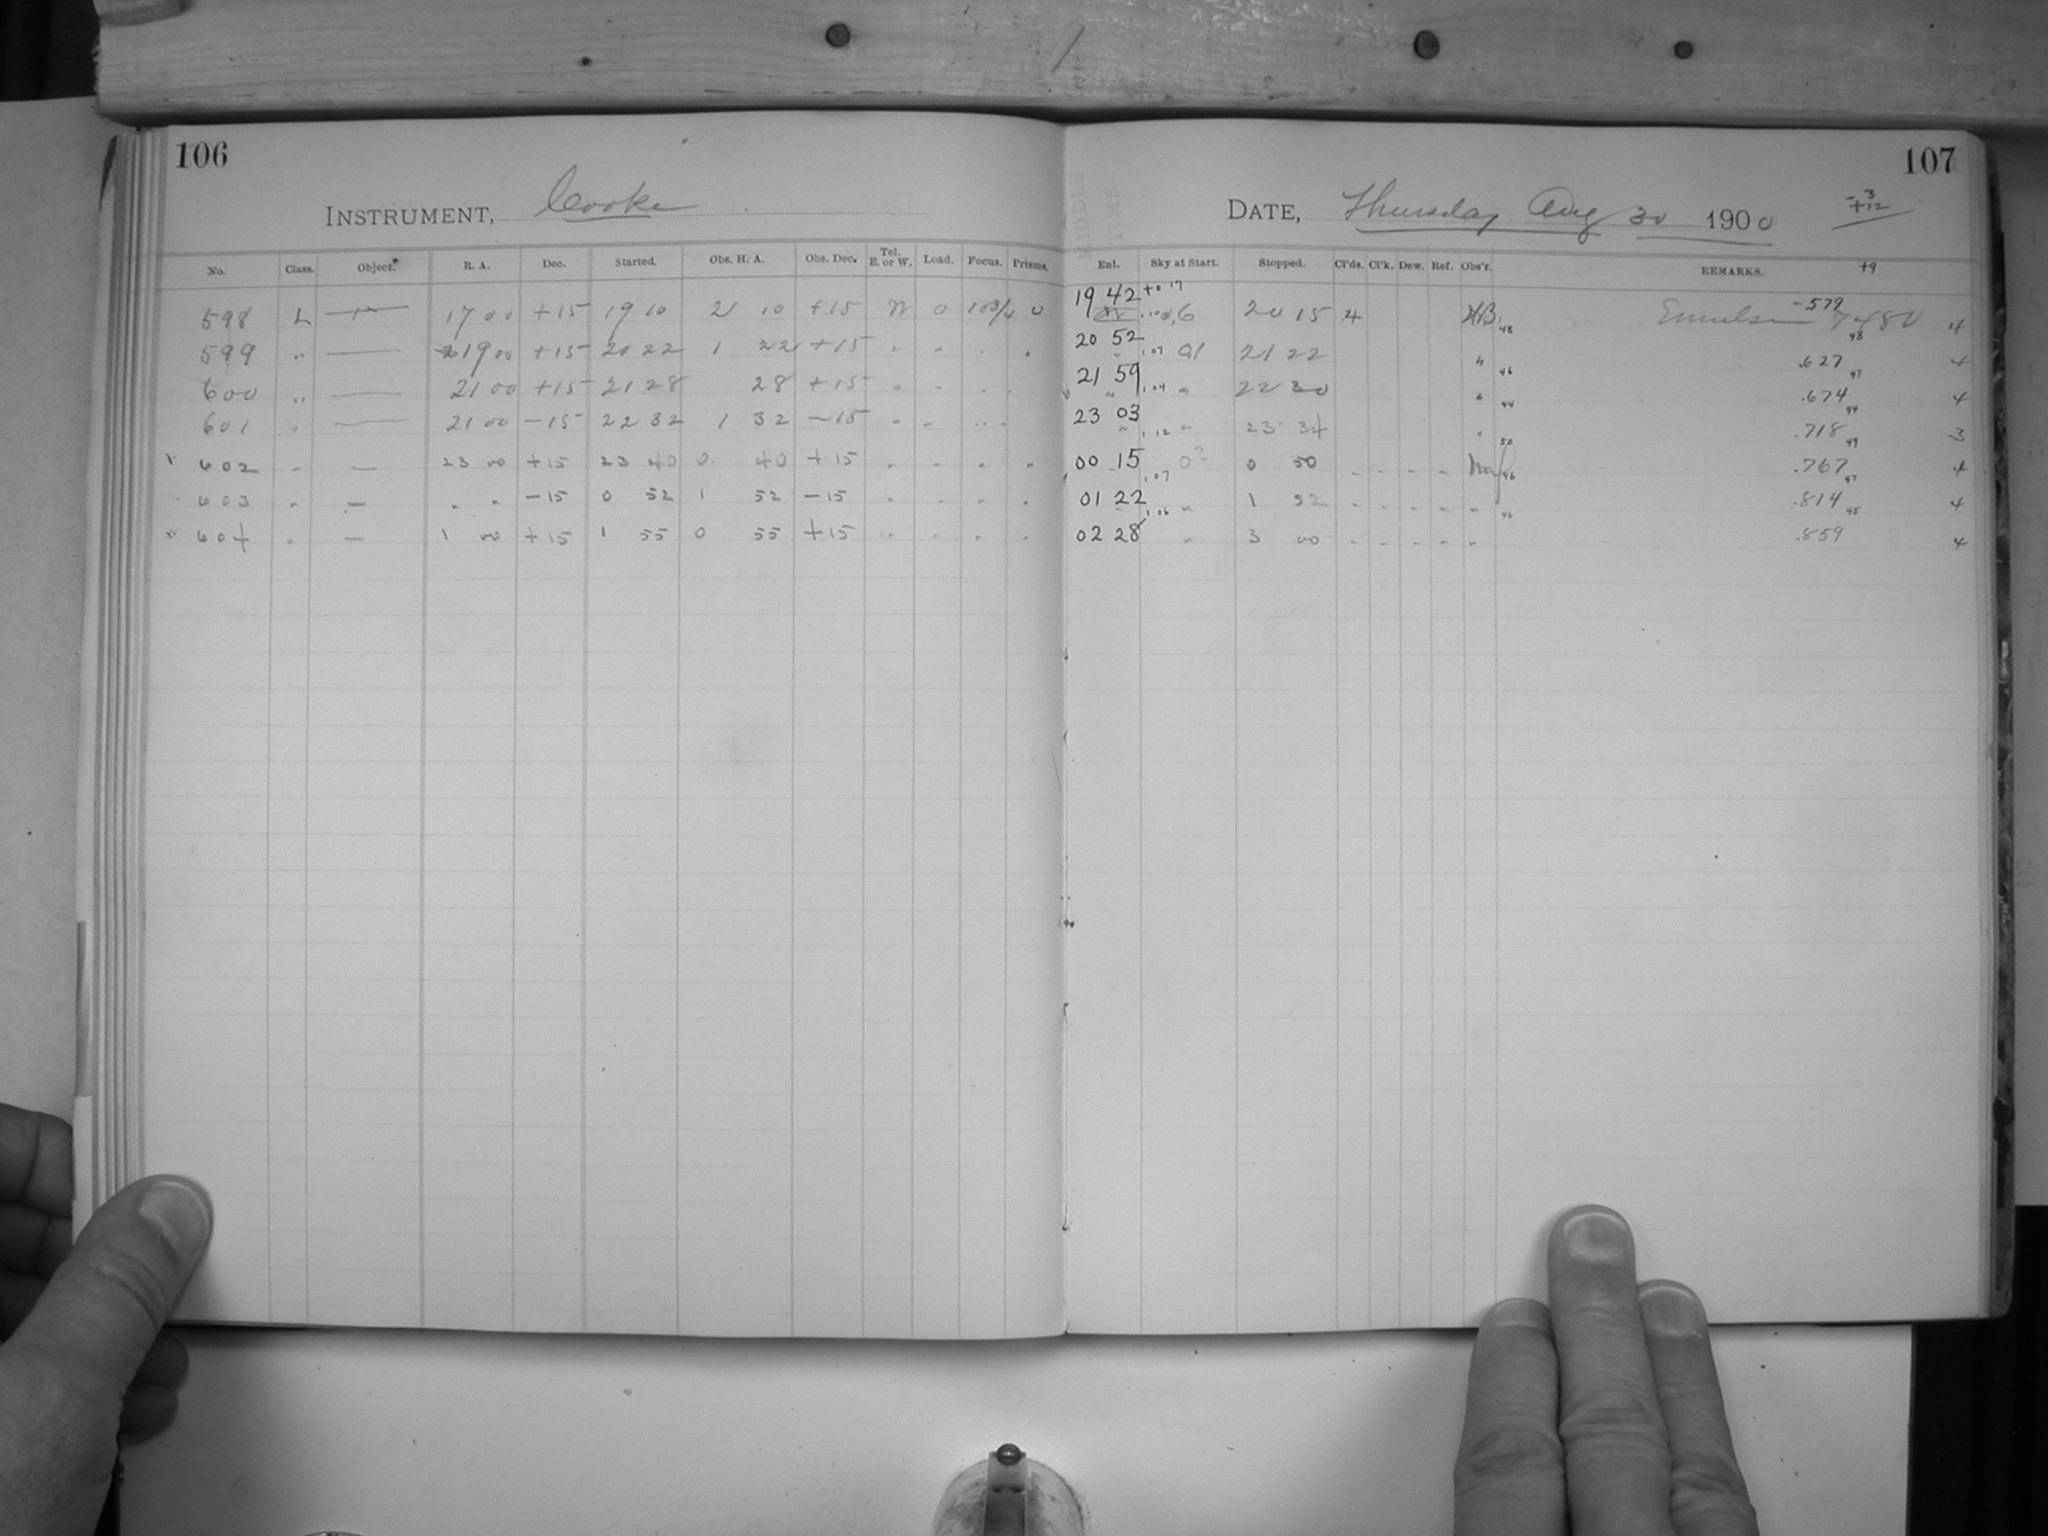 106
INSTRUMENT, Cooke
No. Class. Object. R. A. Dec. Started. Obs. H. A. Obs. Dec. Tel. E. or W. Load. Focus. Prisms.
598 L — 17 00 +15 19 10 2 10 +15 W 0 10 3/4 0
599 " — 19 00 +15 20 22 1 22 +15 " " " "
600 " — 21 00 +15 21 28 28 +15 " " "
601 " — 21 00 -15 22 32 1 32 -15 " " " "
602 " — 23 00 +15 23 40 0 40 +15 " " " "
603 " — " " -15 0 52 1 52 -15 " " " "
604 " — 1 00 +15 1 55 0 55 +15 " " " "
107
DATE, Thursday Aug 30 1900
-3
+12
+9
MIDDLE TIME
Enl. Sky at Start. Stopped. Cl'ds. Cl'k. Dew. Ref. Obs'r. REMARKS.
19 42 +0 17 6 20 15 4 HB 48 Emulsion 7480 -579 48 4
20 52 1.07 01 21 22 " 46 .627 47 4
21 59 1.04 " 22 30 " 44 .674 44 4
23 03 1.12 " 23 34 " 50 .718 49 3
00 15 1.07 0? 0 50 " " " " 46 .767 47 4
01 22 1.06 " 1 52 " " " " " 46 .814 45 4
02 28 " 3 00 " " " " " .859 4